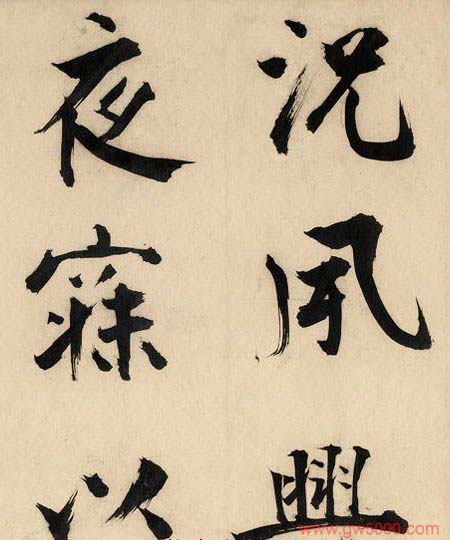 况夙興
夜寐以
www.gw5000.com